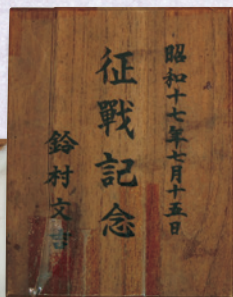 昭和十七年七月十五日
征戰記念
鈴村文吉